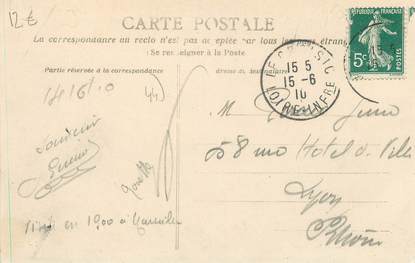 12€
CARTE POSTALE
La correspondance au recto n'est pas acceptée par tous les pays étrangers
Se renseigner à la Poste
Partie réservée à la correspondance
Adresse du destinataire
RÉPUBLIQUE FRANÇAISE
5c
POSTES
15 5
15-6
10
LOIRE-INFRE
14/6/10
44
Souvenir
M
58 rue Hotel de Ville
Lyon
Rhône
en 1900 à Marseille